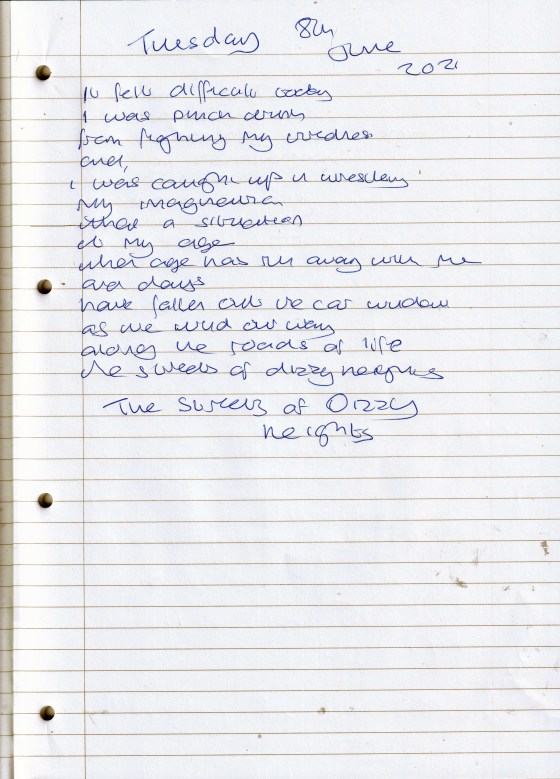 Tuesday 8th
June
2021
It felt difficult today
I was punch drunk
from fighting my
and,
I was caught up in wrestling
my imagination
what a situation
at my age
when age has run away with me
and days
have fallen out the car window
as we wind our way
along the roads of life
the streets of dizzy heights
The Streets of Dizzy
heights